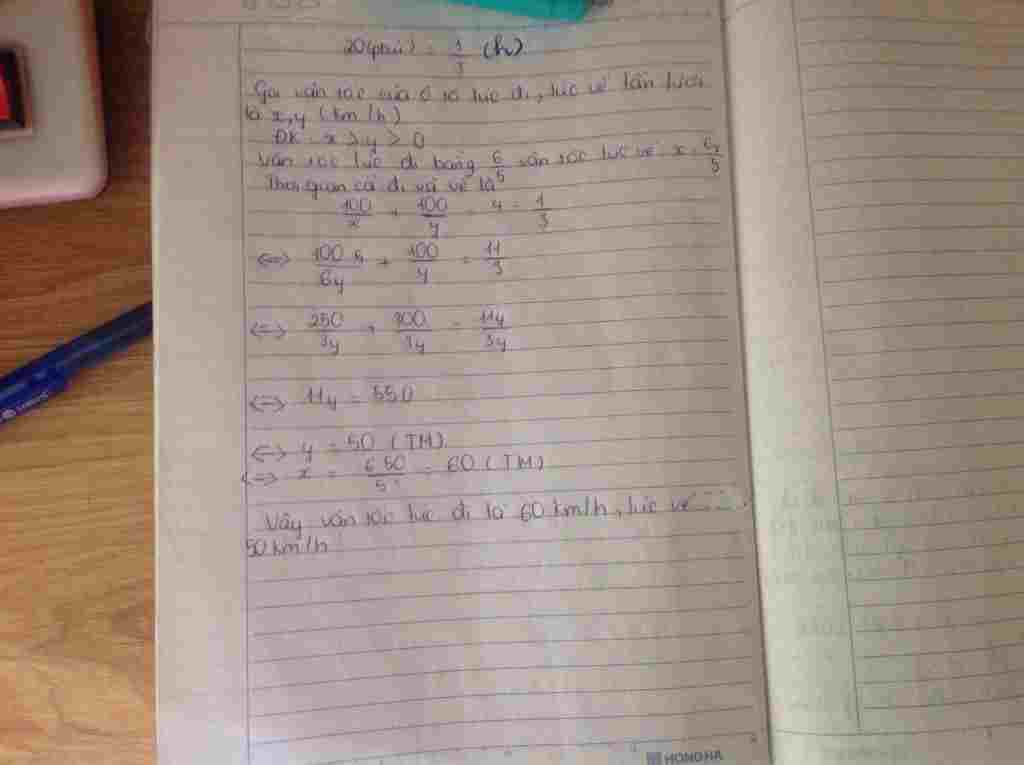 20 (phút) = 1/3 (h)
Gọi vận tốc của ô tô lúc đi, lúc về lần lượt
là x, y (km/h)
ĐK: x > y > 0
Vận tốc lúc đi bằng 6/5 vận tốc lúc về x = 6y/5
Thời gian cả đi và về là
100/x + 100/y = 4 - 1/3
<=> 100.5/6y + 100/y = 11/3
<=> 250/3y + 300/3y = 11y/3y
<=> 11y = 550
<=> y = 50 (TM)
<=> x = 6.50/5 = 60 (TM)
Vậy vận tốc lúc đi là 60 km/h, lúc về
50 km/h
HONGHA